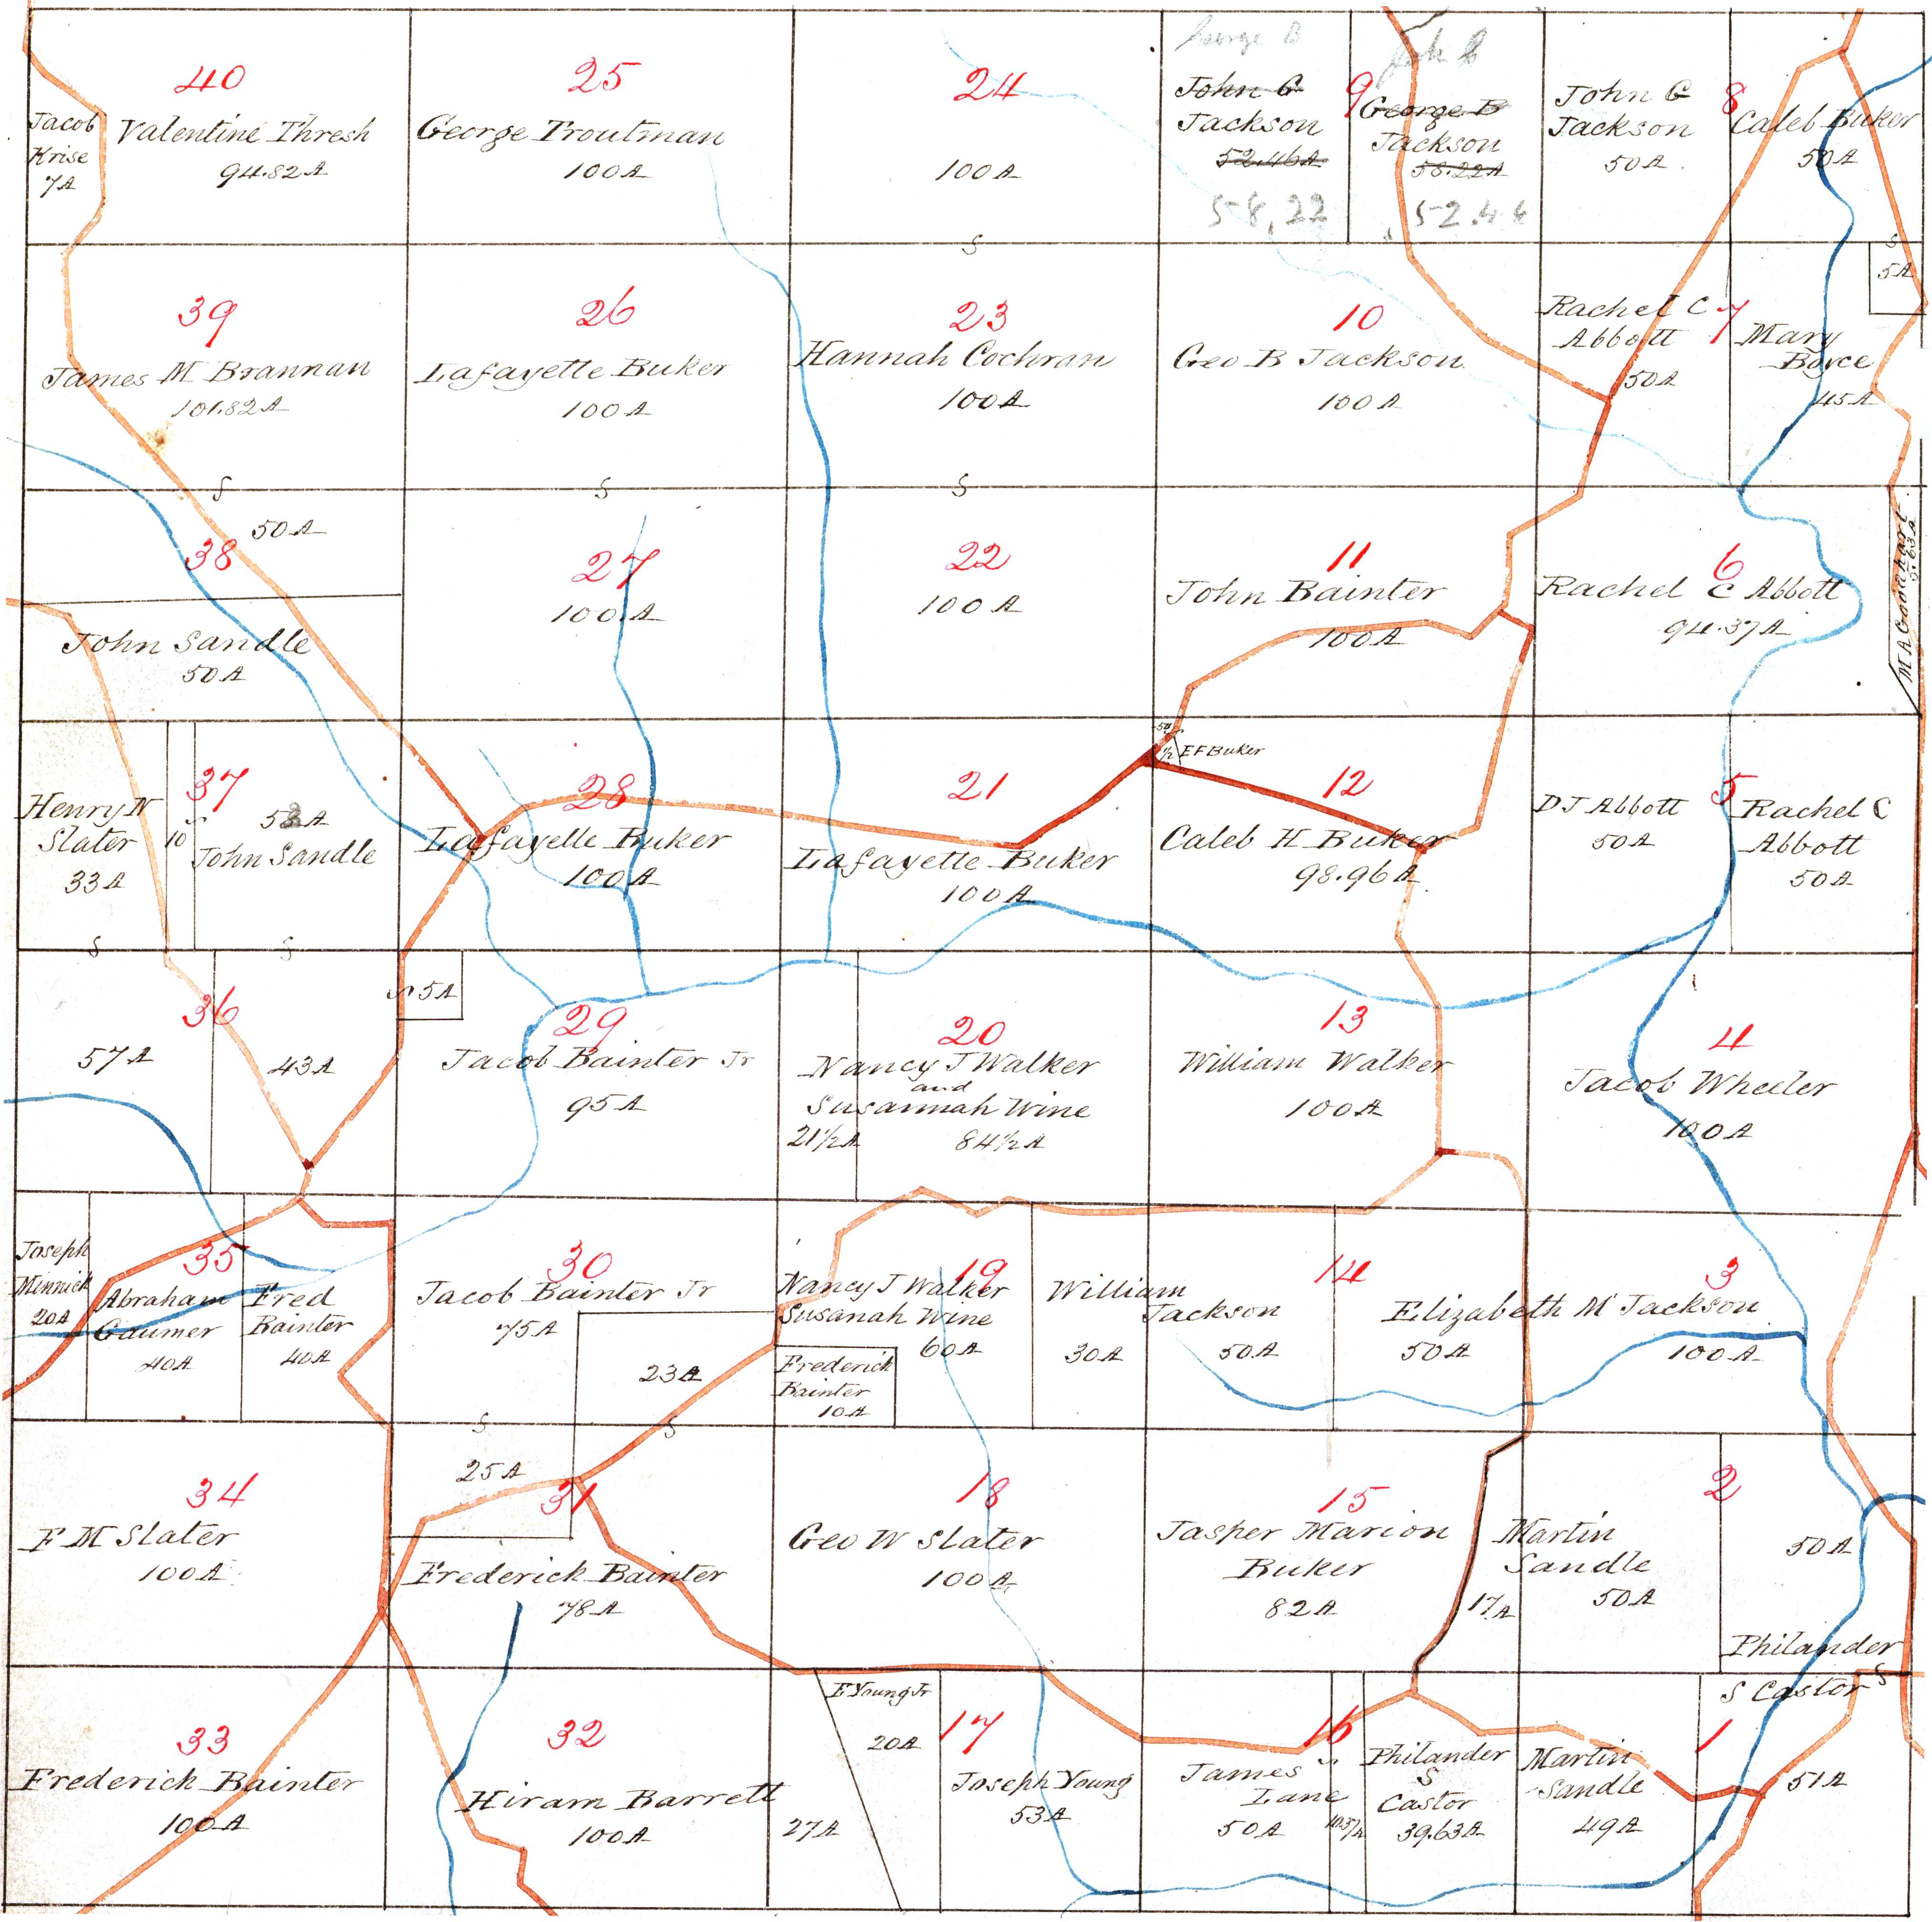 40
Jacob
Krise
7A
Valentine Thresh
94.82A
25
George Troutman
100A
24
100A
George B
John G
Jackson
52.46A
58,22
9
George B
Jackson
58.22A
52.46
John G
Jackson
50A
8
Caleb Buker
50A
39
James M Brannan
101.82A
26
Lafayette Buker
100A
23
Hannah Cochran
100A
10
Geo B Jackson
100A
Rachel C
Abbott
50A
7
Mary
Boyce
45A
5A
38
50A
John Sandle
50A
27
100A
22
100A
11
John Bainter
100A
6
Rachel C Abbott
94.37A
Henry N
Slater
33A
10
37
John Sandle
28
Lafayette Buker
100A
21
Lafayette Buker
100A
½
EF Buker
12
Caleb H Buker
98.96A
DJ Abbott
50A
5
Rachel C
Abbott
50A
36
57A
43A
5A
29
Jacob Bainter Jr
95A
20
Nancy J Walker
and
Susannah Wine
21½A
84½A
13
William Walker
100A
4
Jacob Wheeler
100A
Joseph
Minnick
20A
35
Abraham
Gaumer
40A
Fred
Bainter
40A
30
Jacob Bainter Jr
75A
23A
19
Nancy J Walker
Susanah Wine
60A
Frederick
Bainter
10A
William
Jackson
30A
50A
14
3
Elizabeth M Jackson
50A
100A
34
F M Slater
100A
25A
31
Frederick Bainter
78A
18
Geo W Slater
100A
15
Jasper Marion
Buker
82A
17A
Martin
Sandle
50A
2
50A
Philander
S Castor
33
Frederick Bainter
100A
32
Hiram Barrett
100A
27A
E Young Jr
20A
17
Joseph Young
53A
16
James
Lane
50A
Philander
S
Castor
39.63A
Martin
Sandle
49A
1
51A